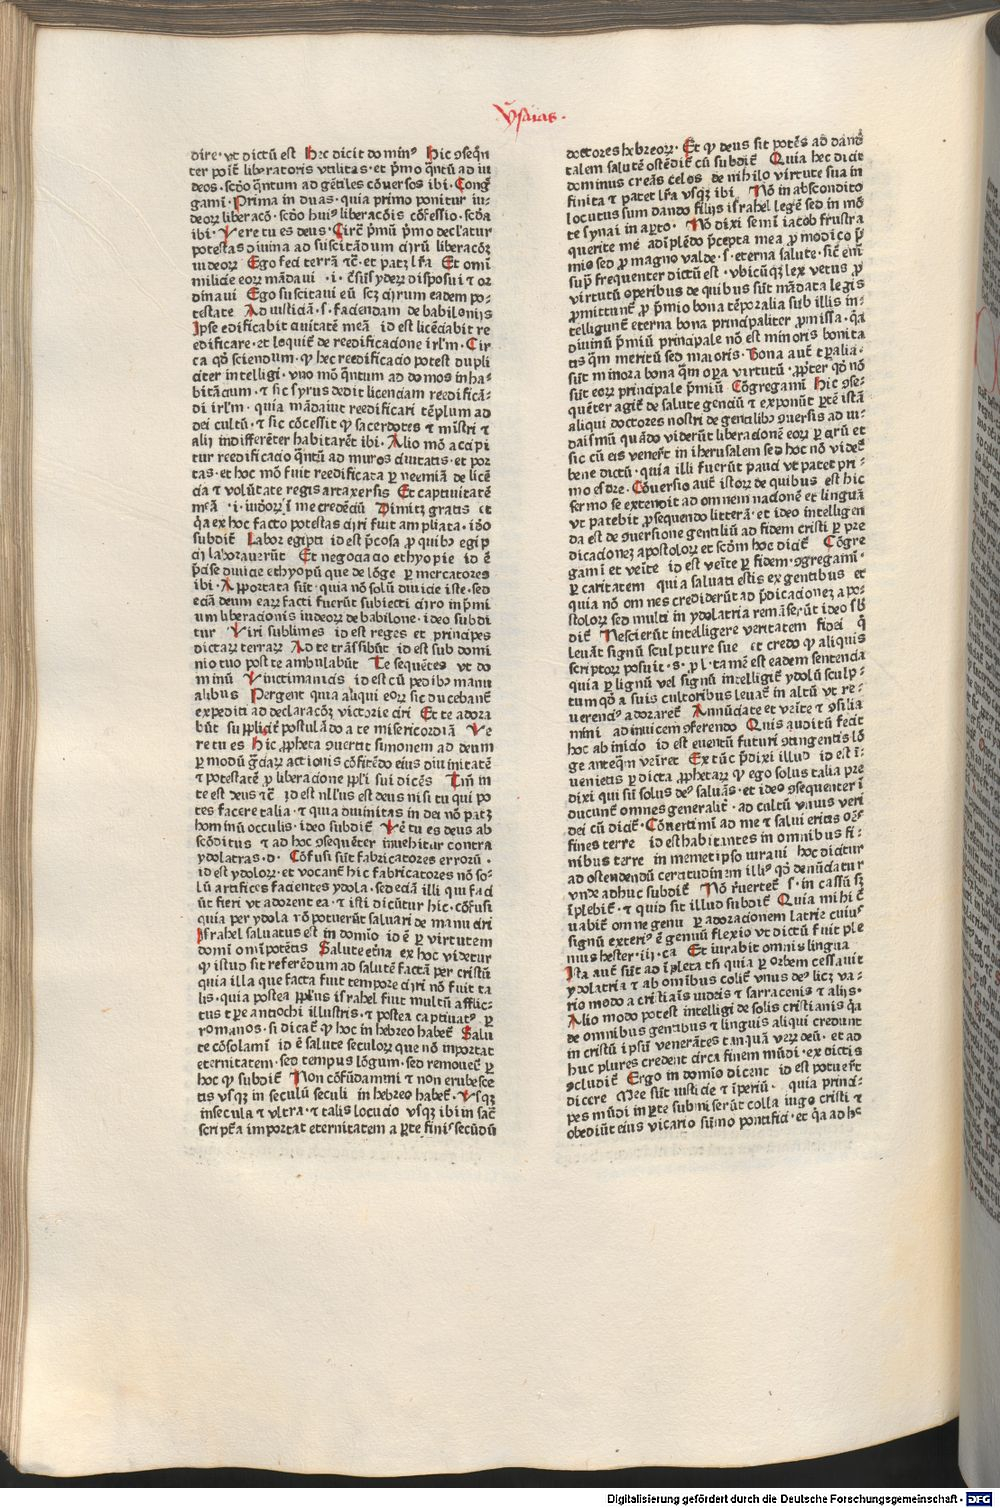 Ysaias.
dire·vt dictū est Hec dicit dominꝰ Hic ꝯseqn̄
ter poīt liberatoris vtilitas·et p̄mo q̄ntū ad iu
deos·scd̓o q̄ntum ad gētiles cōuersos ibi·Congͥ
gamī·Prima in duas·quia primo ponitur iu·
deorꝝ liberacō·scd̓o huiꝰ liberacōis cōfessio·scd̓a
ibi·Vere tu es deus·Circͣ p̄mū p̄mo declͣatur
potestas diuina ad suscitādum cirū liberacōꝫ
iudeorꝝ Ego feci terrā ⁊c̄·et patꝫ lr̄a Et omī
milicie eorꝝ mādaui ·i· c̄siīs yderꝫ disposui ⁊ or
dinaui Ego suscitaui eū scꝫ cirum eadem po·
testate Ad iusticiā·s·faciendam de babilonijs
Ipse edificabit ciuitatē meā id est licēciabit re
edificare·et loquit᷑ de reedificacione irl'm·Cir
ca qd̓ sciendum·ꝙ hec reedificacio potest dupli
citer intelligi·vno mō q̄ntum ad domos inha·
bitāciam·⁊ sic syrus dedit licenciam reedificā·
di irl'm·quia mādauit reedificari tēplum ad
dei cultū·⁊ sic cōcessit ꝙ sacerdotes ⁊ mīstri ⁊
alij indifferēter habitarēt ibi·Alio mō accipi
tur reedificacio q̄ntū ad muros ciuitatis·et por
tas·et hoc mō fuit reedificata ꝑ neemiā de licē
cia ⁊ volūtate regis artaxersis Et captiuitatē
meā ·i·iudorꝝ ī me credēciū Dimitꝫ gratis et
q̄a ex hoc facto potestas ciri fuit ampliata·id̓o
subdit᷑ Labor egipti id est p̄cosa ꝓ quibꝫ egip
cij laborauerūt Et negociacio ethyopie id ē
p̄cise diuicie ethyopū que de lōge ꝑ mercatores
ibi·Apportata sūt·quia nō solū diuicie iste·sed
eciā deum earꝫ facti fuerūt subiecti ciro in p̄mi
um liberacionis iudeorꝝ de babilone·ideo subdi
tur Viri sublimes id est reges et principes
dictarꝫ terrarꝝ Ad te trāssibūt id est sub domi
nio tuo post te ambulabūt Te sequētes vt do
minū Vinctimanicis id est cū pedibꝫ manu
alibus Pergent quia aliqui eorꝝ sic ducebant᷑
expediti ad declaracōꝫ victorie ciri Et te adora
būt supplicit᷑ postulādo a te misericordiā Ve
re tu es Hic ꝓpheta ꝯuertit sermonem ad deum
ꝑ modū grͣciarꝝ actionis cōfitēdo eius diuinitatē
⁊ potestatē ꝓ liberacione ppl'i sui dicēs Tm̄ in
te est deus ⁊c̄ id est nll'us est deus nisi tu qui po
tes facere talia·⁊ qua diuinitas in dei nō patꝫ
hominū occulis·ideo subdit᷑ Ve᷑ tu es deus ab
scōditus ⁊ ad hoc ꝯsequēter inuehitur contra
ydolatras·d· Cōfusi sūt fabricatores errorū·
id est ydolorꝝ·et vocant᷑ hic fabricatores nō so·
lū artifices facientes ydola·sed eciā illi qui faci
ūt fieri vt adorent ea·⁊ isti dicūtur hic·cōfusi
quia per ydola nō potuerūt saluari de manu ciri
Israhel saluatus est in domīo id ē ꝑ virtutem
domī omīpotētis Salute et̓na ex hoc videtur
ꝙ istud sit referēdum ad salutē factā per cristū
quia illa que facta fuit tempore ciri nō fuit ta
lis·quia postea ppl'us israhel fuit multū afflic·
tus tꝑe antiochi illustris·⁊ postea captiuatꝰ ꝑ
romanos·si dicat᷑ ꝙ hoc in hebreo habet᷑ Salu
te cōsolamī id ē salute seculorꝝ que nō inportat
eternitatem·sed tempus lōgum·sed remouet᷑ ꝑ
hoc ꝙ subdit᷑ Non cōfūdamini ⁊ non erubesce
tis vsqꝫ in seculū seculi in hebreo habet᷑·Vsqꝫ
insecula ⁊ vltra·⁊ talis locucio vsqꝫ ibi in sac̄
script̓a importat eternitatem a ꝑte finiꝰ secūdū
doctores hebreorꝝ·Et ꝙ deus sit potēs ad dand̓
talem salutē ostēdit᷑ cū subdit᷑ Quia hec dicit
dominus creās celos de nihilo virtute sua in
finita ⁊ patet lr̄a vsqꝫ ibi Nō in abscondito
locutus sum dando filijs israhel legē sed in mō
te synai in aꝑto· Nō dixi semī iacob frustra
querite me adīplēdo p̄cepta mea ꝓ modico p̄
mio sed ꝓ magno valde·s·eterna salute·sic̄ em̄
sup̄ frequenter dictū est·vbicūqꝫ lex vetus ꝓ
virtutū operibus de quibus sūt mādata legis
ꝓmittunt᷑ ꝓ p̄mio bona tēporalia sub illis in·
telligunt᷑ eterna bona principaliter ꝓmissa·q̄a
diuinū p̄miū principale nō est minoris bonita
tis q̄m meritū sed maioris·Bona aut᷑ tꝑalia·
sūt minora bona q̄m oꝑa virtutū·ꝓpter qd̓ nō
sūt eorꝝ principale p̄miū Cōgregamī Hic ꝯse·
quēter agit᷑ de salute genciū ⁊ exponūt ꝑtē istā
aliqui doctores nostri de gentilibꝫ ꝯuersis ad iu·
daismū quādo viderūt liberacionē eorꝝ ꝑ cirū et
sic cū eis venert᷑ in iherusalem sed hoc nō videt᷑
bene dictū·quia illi fuerūt pauci vt patet pri·
mo esdre·Cōuersio aut᷑ istorꝝ de quibus est hic
sermo se extendit ad omnem nacionē et linguā
vt patebit ꝓsequendo litterā·et ideo intelligen
da est de ꝯuersione gentiliū ad fidem cristi ꝑ pre
dicacionez apostolorꝝ et scd̓m hoc dicit᷑ Cōgre
gamī et veīte id est veīte ꝑ fidem·ꝯgregamī·
ꝑ caritatem quia saluati estis ex gentibus et
quia nō omnes crediderūt ad p̄dicacionez apo·
stolorꝝ sed multi in ydolatria remāserūt ideo sb̓
dit᷑ Nescierūt intelligere veritatem fidei q̇
leuāt signū sculpture sue et credo ꝙ aliquis
scriptorꝝ posuit·s·ꝓ l·tamē est eadem sentencia
quia ꝑ lignū vel signū intelligit᷑ ydolū sculp·
tum qd̓ a suis cultoribus leuat᷑ in altū vt re·
uerenciꝰ adoraret᷑ Annūciate et veīte ⁊ ꝯsilia
mini adinuicem ꝯferendo Quis auditū fecit
hoc ab inicio id est euentū futuri ꝯtingentis lō
ge anteq̄m veīret Ex tūc p̄dixi illud id est ī·
uenietis ꝑ dicta ꝓphetarꝝ ꝙ ego solus talia pre
dixi qui sū solus deꝰ saluās·et ideo ꝯsequenter ī
ducunt᷑ omnes generalit᷑·ad cultū vnius veri
dei cū dicit᷑·Cōuertimī ad me ⁊ salui eritis oēs
fines terre id est habitantes in omnibus fi·
nibus terre in memetipso iuraui hoc dicitur
ad ostendendū certitudinem illiꝰ qd̓ denūciatur
vnde adhuc subdit᷑ Nō r̓uertet᷑ s·in cassū sꝫ
īplebit᷑·⁊ quid sit illud subdit᷑ Quia mihi c̄
uabit᷑ omne genu ꝑ adoracionem latrie cuiuꝰ
signū exteriꝰ ē genuū flexio vt dictū fuit ple
nius hester·iij·ca Et iurabit omnis lingua
Ista aut᷑ sūt adīpleta tn̄ quia ꝑ orbem cessauit
ydolatria ⁊ ab omībus colit᷑ vnus deꝰ licꝫ va·
rio modo a cristiaīs iudeis ⁊ sarracenis ⁊ alijs·
Alio modo potest intelligi de solis cristianis q̄a
de omnibus gentibus ⁊ linguis aliqui credunt
in cristū ipsū venerātes tanquā verꝝ deū·et ad
huc plures credent circa finem mūdi·ex dictis
ꝯcludit᷑ Ergo in domīo dicent id est potuert᷑
dicere Mee sūt iusticie ⁊ īperiū· quia princi·
pes mūdi in ꝑte submiserūt colla iugo cristi ⁊
obediūt eius vicario sūmo pontifici·et q̄a ad hc
Digitalisierung gefördert durch die Deutsche Forschungsgemeinschaft - DFG